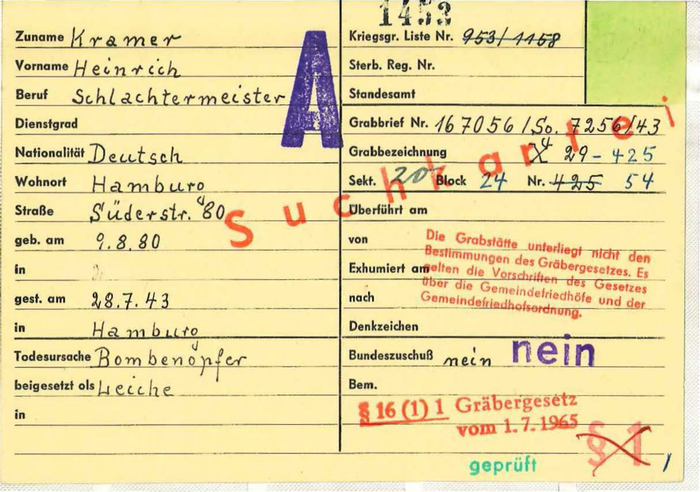 1453
Zuname Kramer
Vorname Heinrich
Beruf Schlachtermeister
Dienstgrad
Nationalität Deutsch
Wohnort Hamburg
Straße Süderstr. 80
geb. am 9.8.80
in
gest. am 28.7.43
in Hamburg
Todesursache Bombenopfer
beigesetzt als Leiche
in
A
Suchkartei
Kriegsgr. Liste Nr. 953/1158
Sterb. Reg. Nr.
Standesamt
Grabbrief Nr. 167056/So. 7256/43
Grabbezeichnung 29-425
Sekt. Block 24 Nr. 425 54
Überführt am
von
Exhumiert am
nach
Die Grabstätte unterliegt nicht den
Bestimmungen des Gräbergesetzes. Es
gelten die Vorschriften des Gesetzes
über die Gemeindefriedhöfe und der
Gemeindefriedhofsordnung.
Denkzeichen
Bundeszuschuß nein nein
Bem.
§ 16 (1) 1 Gräbergesetz
vom 1.7.1965
§ 1
geprüft